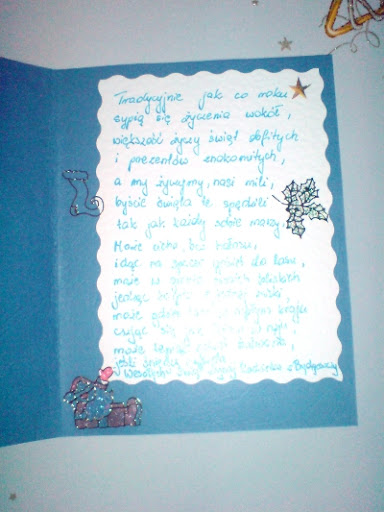 Tradycyjnie jak co roku
sypią się życzenia wokół,
większość życzy świąt obfitych
i prezentów znakomitych,
a my życzymy, nasi mili,
byście święta te spędzili
tak jak każdy sobie marzy.
Może cicho, bez hałasu,
idąc na spacer gdzieś do lasu,
może w gronie swoich bliskich
jedząc z jednej miski,
może gdzieś tam w
czując się jak
może
jeśli
Wesołych Świąt życzy z Bydgoszczy